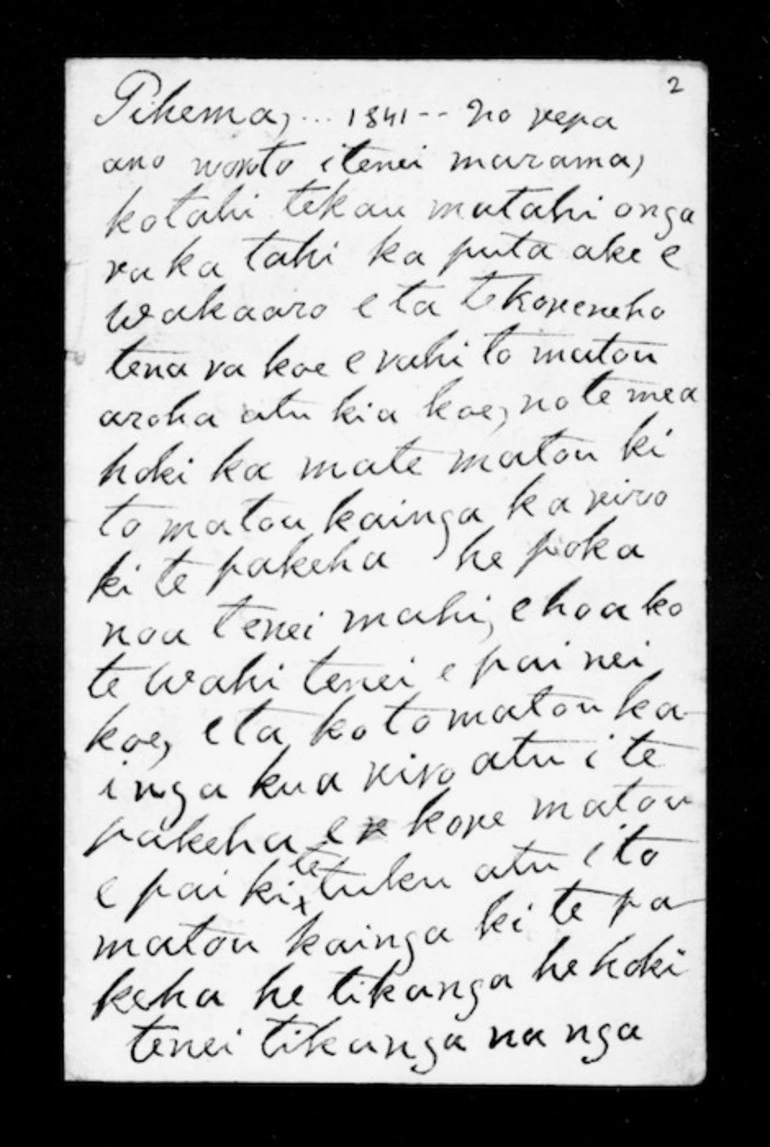 2
Tihema, ... 1841 -- no repa
ano worto i tenei marama,
kotahi tekau matahi onga
ra ka tahi ka puta ake e
wakaaro e ta te koreneho
tena ra koe e rahi to matou
aroha atu kia koe, no te mea
hoki ka mate matou ki
to matou kainga ka riro
ki te pakeha he poka
noa tenei mahi, e hoa ko
te wahi tenei e pai nei
koe, e ta ko to matou ka-
inga kua riro atu i te
pakeha e kore matou
e pai ki te tuku atu i to
matou kainga ki te pa-
keha he tikanga he hoki
tenei tikanga na nga